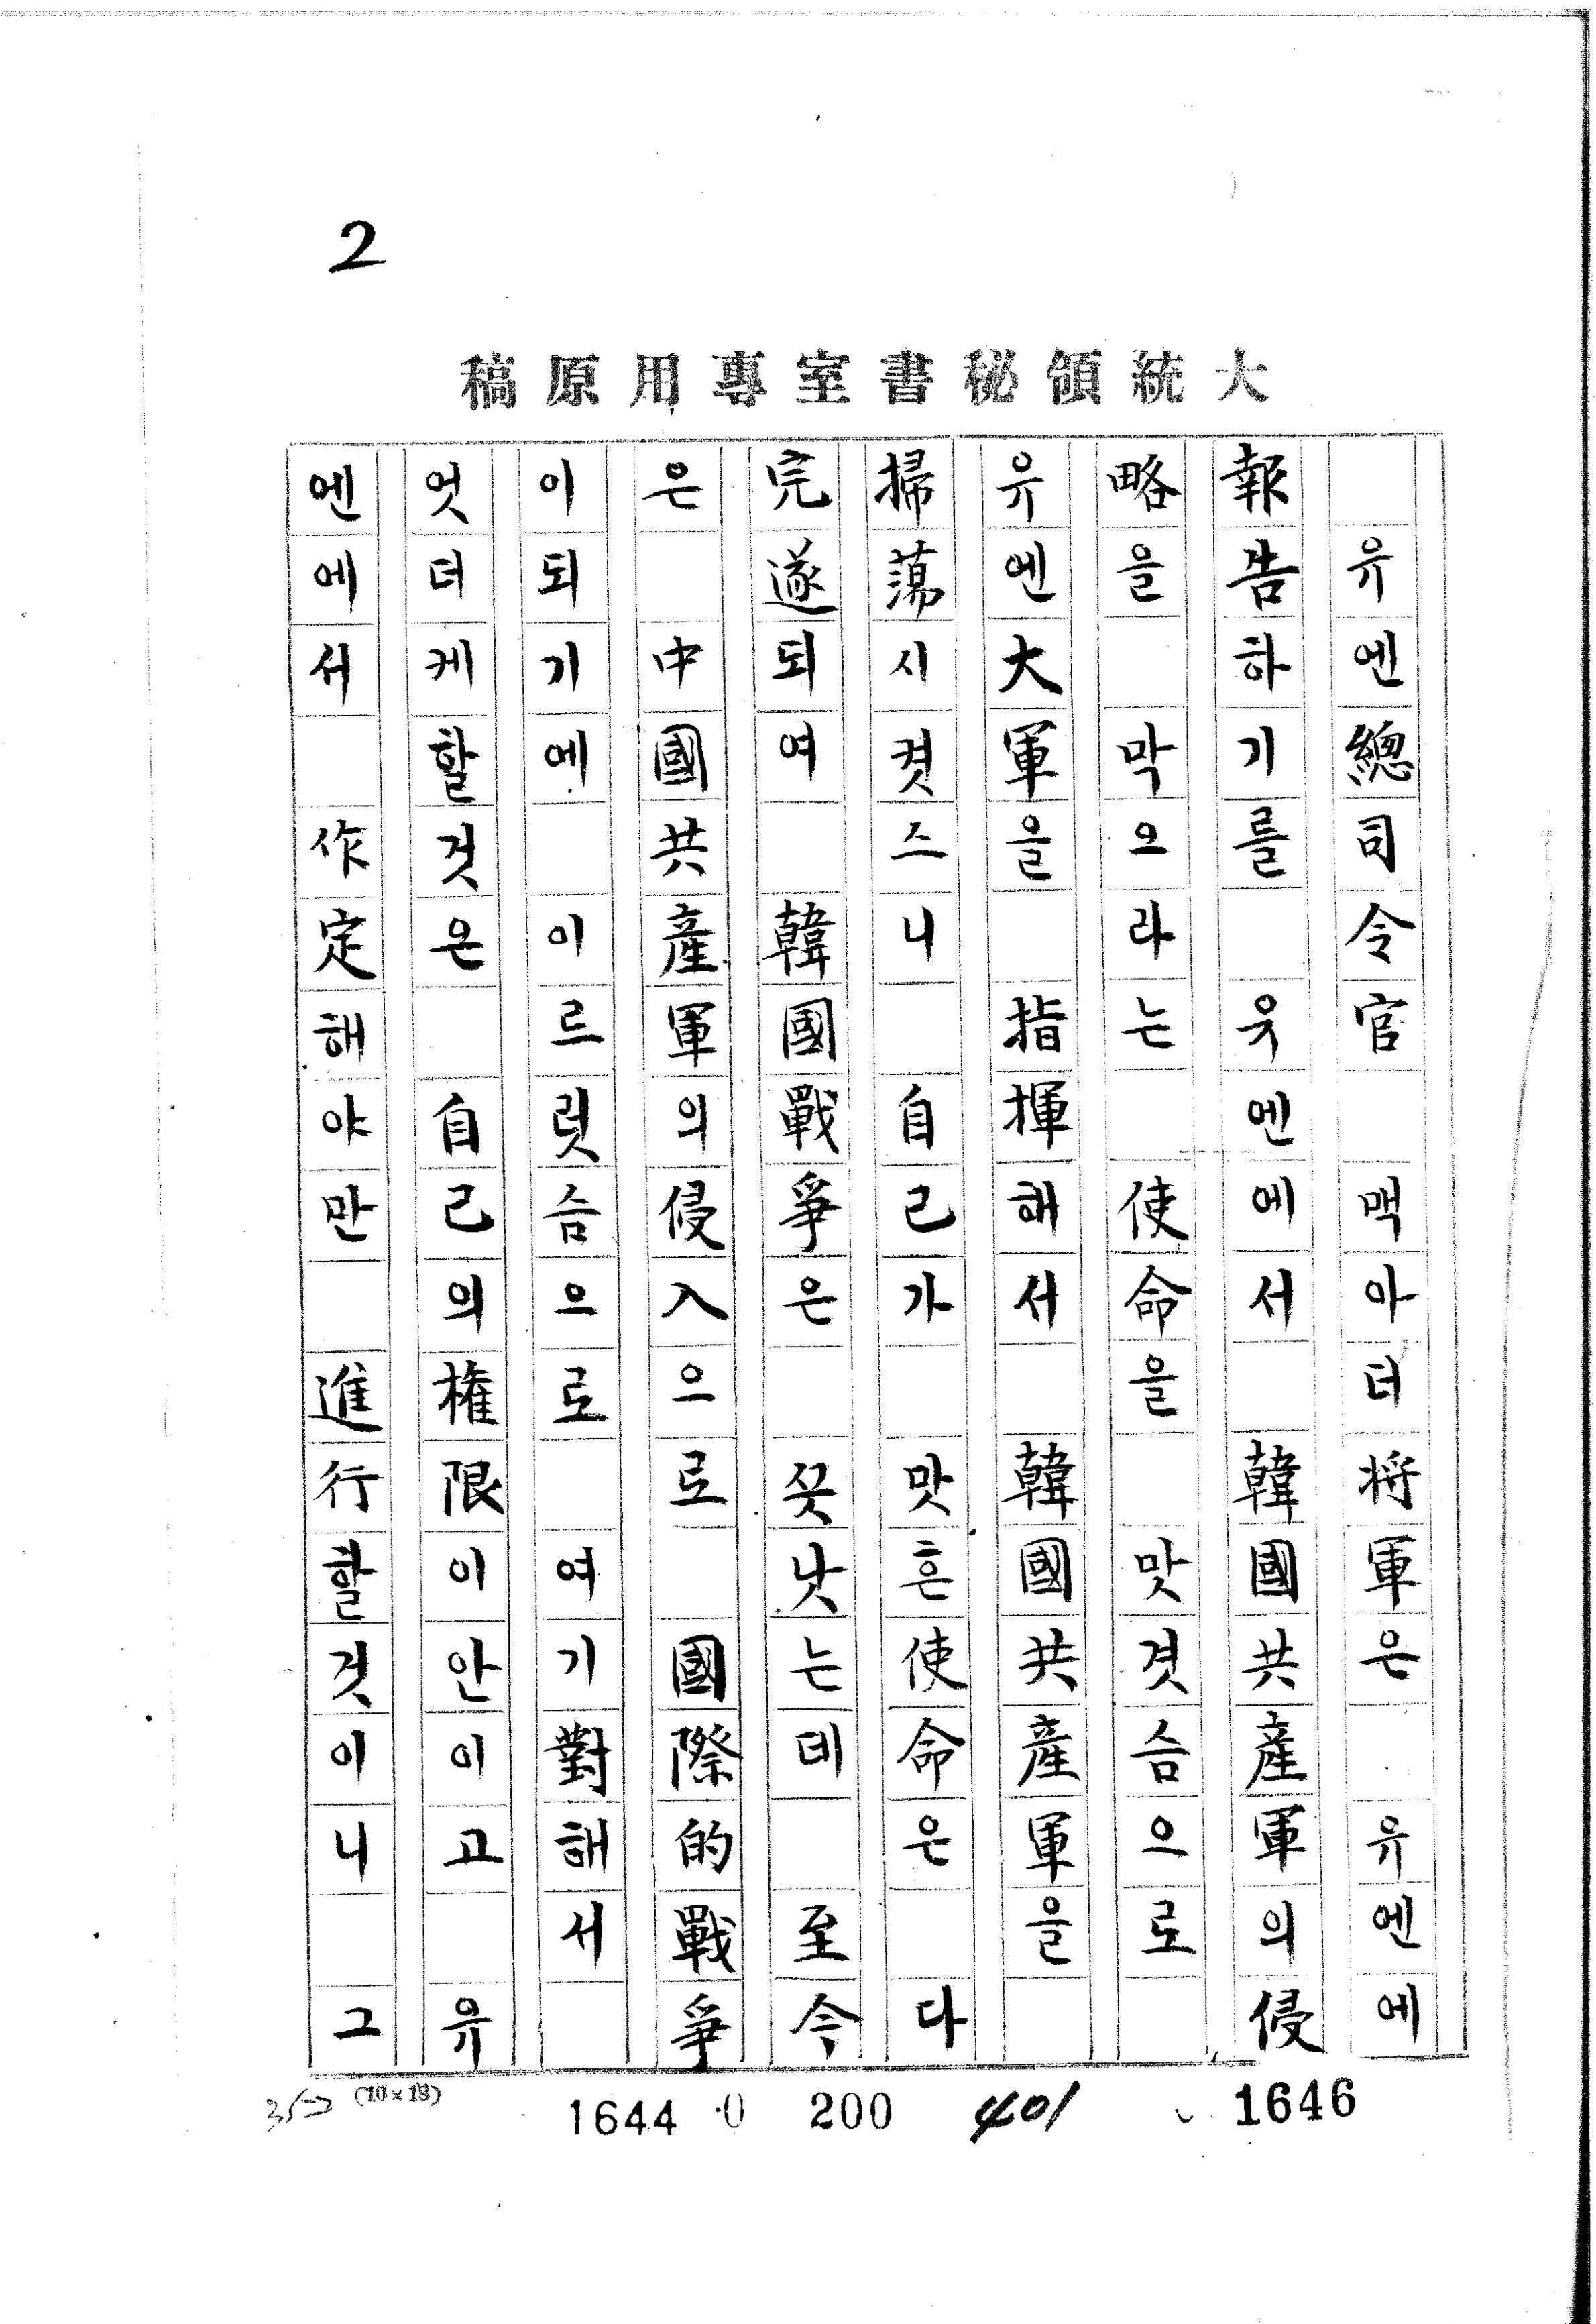 2
大統領秘書室專用原稿
유엔總司令官 맥아더将軍은 유엔에
報告하기를 유엔에서 韓國共産軍의侵
略을 막으라는 使命을 맛겻슴으로
유엔大軍을 指揮해서 韓國共産軍을
掃蕩시켯스니 自己가 맛흔使命은 다
完遂되여 韓國戰爭은 끗낫는데 至今
은 中國共産軍의侵入으로 國際的戰爭
이되기에 이르럿슴으로 여기對해서
엇더케할것은 自己의權限이안이고 유
엔에서 作定해야만 進行할것이니 그
(10×18) 1644 0 200 401 1646